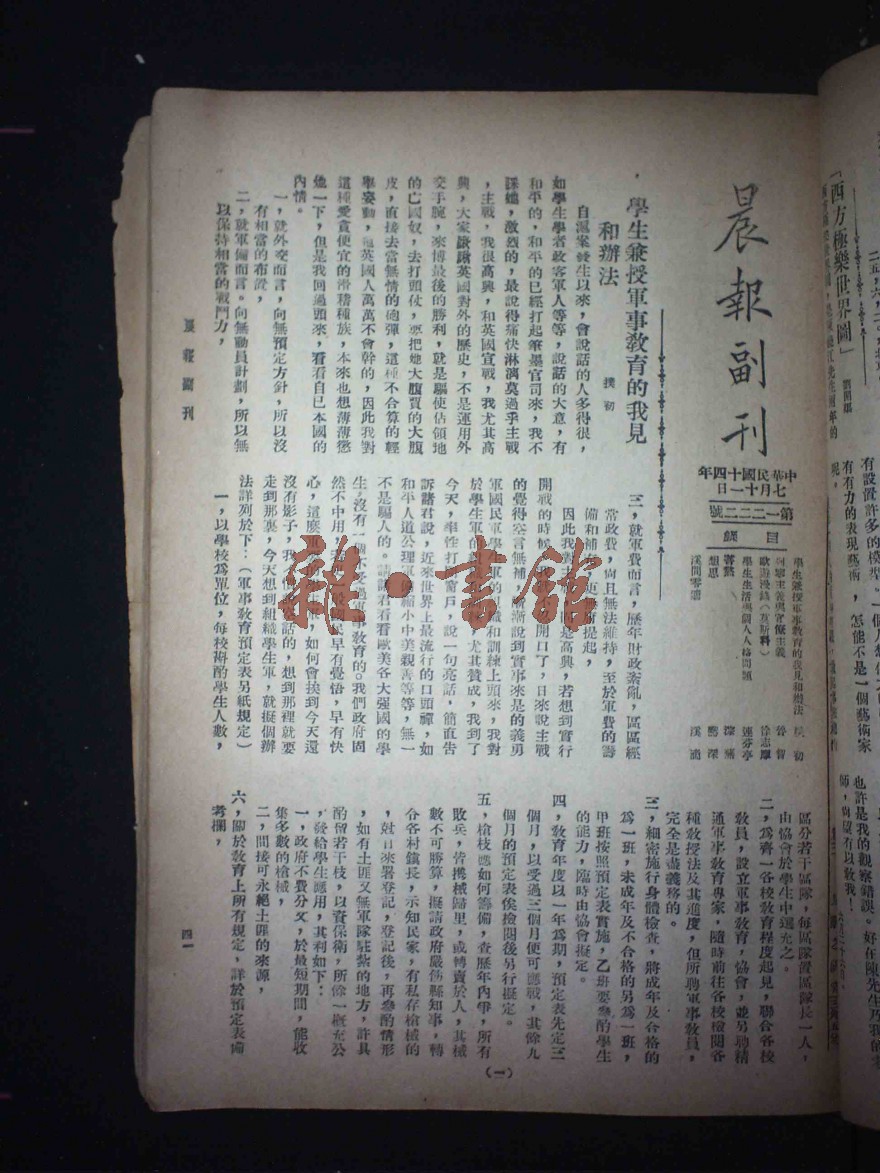 晨報副刊
中華民國十四年
七月十一日
第一二二二號
目錄
學生兼授軍事教育的我見和辦法 撲初
歐遊漫錄(莫斯科) 徐志摩
學生生活與個人人格問題
學生兼授軍事教育的我見
和辦法
撲初
自滬案發生以來,會說話的人多得很,
如學生學者政客軍人等等,說話的大意,有
和平的,和平的已經打起筆墨官司來,我不
謀嬀,激烈的,最說得痛快淋漓莫過乎主戰
,主戰,我很高興,和英國宣戰,我尤其高
興,大家談談英國對外的歷史,不是運用外
交手腕,來博最後的勝利,就是驅使佔領地
的亡國奴,去打頭仗,要把她大腹賈的大腹
皮,直接去當無情的砲彈,這種不合算的輕
舉妄動,
英國人萬萬不會幹的,因此我對
這種愛貪便宜的滑稽種族,本來也想薄薄懲
她一下,但是我回過頭來,看看自己本國的
內情。
一,就外交而言,向無預定方針,所以沒
有相當的布證,
二,就軍備而言。向無動員計劃,所以無
以保持相當的戰鬥力,
三,就軍費而言,歷年財政紊亂,區區經
常政費,尙且無法維持,至於軍費的籌
備和補充,更無所提起,
因此我對主戰
高興,若想到實行
開戰的時候
開口了,日來說主戰
的覺得空言無補
漸說到實事來是的義勇
軍國民軍學生軍的
織和訓練上頭來,我對
於學生軍的
尤其贊成,我到了
今天,率性打開窗戶,說一句亮話,簡直告
訴諸君說,近來世界上最流行的口頭禪,如
和平人道公理軍備縮小中美親善等等,無一
不是騙人的。請諸君看看歐美各大强國的學
生,沒有一個不受過軍事教育的。我們政府固
然不中用,
國民早有覺悟,早有快
心,這麽
如何會挨到今天還
沒有影子,我
說話的,想到那裡就要
走到那裏,今天想到組織學生軍,就擬個辦
法詳列於下:(軍事教育預定表另紙規定)
一,以學校爲單位,每校斟酌學生人數,
區分若干區隊,每區隊置區隊長一人,
由協會於學生中選充之。
二,爲齊一各校教育程度起見,聯合各校
教員,設立軍事教育,協會,並另聘精
通軍事教育專家,隨時前往各校檢閱各
種教授法及其進度,但所聘軍事教員,
完全是盡義務的。
三,細密施行身體檢查,將成年及合格的
爲一班,未成年及不合格的另爲一班,
甲班按照預定表實施,乙班要參酌學生
的能力,臨時由協會擬定。
四,教育年度以一年爲期,預定表先定三
個月,以受過三個月便可應戰,其餘九
個月的預定表俟檢閱後另行擬定。
五,槍枝應如何籌備,查歷年內爭,所有
敗兵,皆攜械歸里,或轉賣於人,其械
數不可勝算,擬請政府嚴飭縣知事,轉
令各村鎭長,示知民家,有私存槍械的
,姓日來署登記,登記後,再參酌情形
,如有土匪又無軍隊駐紮的地方,許其
酌留若干枝,以資保衛,所餘一概充公
,發給學生應用,其利如下:
一,政府不費分文,於最短期間,能收
集多數的槍械,
二,間接可永絕土匪的來源,
六,關於教育上所有規定,詳於預定表備
考欄,
晨報副刊
四一
(一)
雜·書館
「西方極樂世界圖」
有設置許多的模型
有有力的表現藝術,怎能不是一個藝術家
呢,
也許是我的觀察錯誤。好在陳先生乃我的老
師,尙望有以教我!